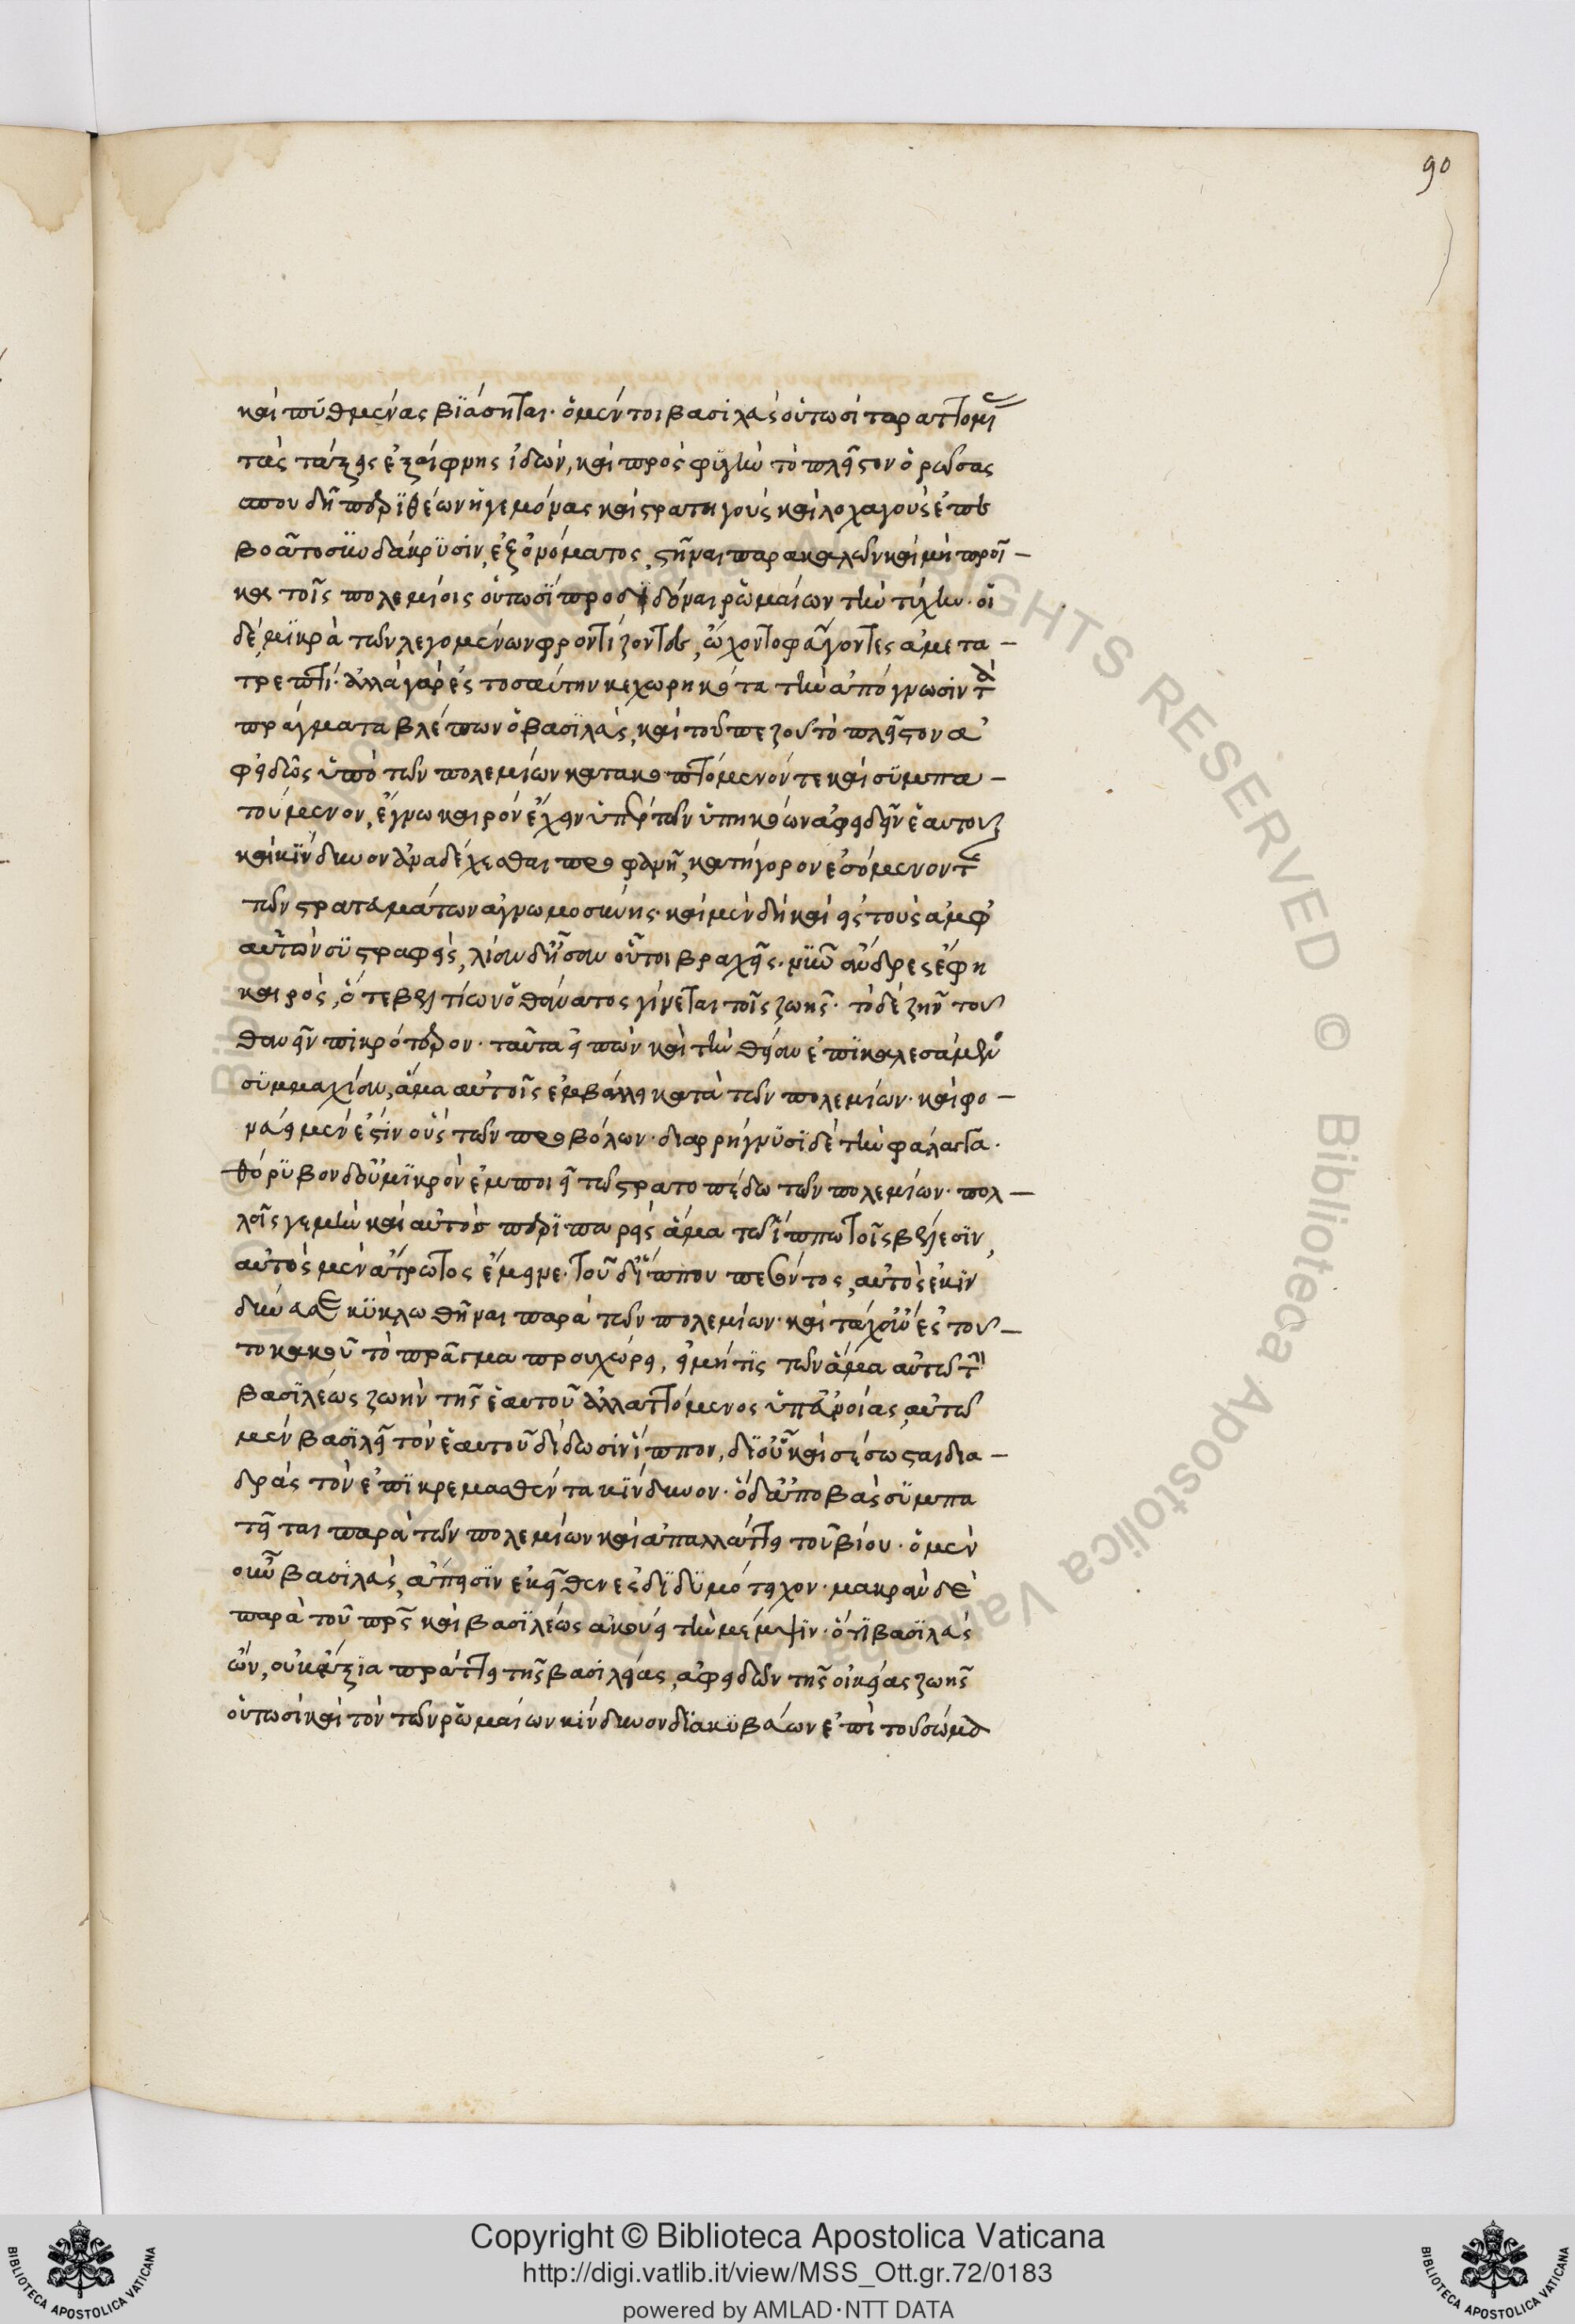 90
καὶ ποῦ θμένας βιάσηται. ὁ μέν τοι βασιλεὺς οὑτωσὶ ταραττομένας
τὰς τάξεις ἐξαίφνης ἰδών, καὶ πρὸς φυγὴν τὸ πλεῖστον ὁρώσας
σπουδῇ περιθέων ἡγεμόνας καὶ στρατηγοὺς καὶ λοχαγοὺς ἐπε
βοᾶτο σὺν δάκρυσιν, ἐξ ὀνόματος, στῆναι παρακαλῶν καὶ μὴ προῖ-
κα τοῖς πολεμίοις οὑτωσὶ προδιδόναι ῥωμαίων τὴν τύχην. οἱ
δὲ, μικρὰ τῶν λεγομένων φροντίζοντες, ᾤχοντο φεύγοντες ἀμετα-
τρεπτί. ἀλλὰ γὰρ ἐς τοσαύτην κεχωρηκότα τὴν ἀπόγνωσιν τὰ
πράγματα βλέπων ὁ βασιλεὺς, καὶ τοῦ πεζοῦ τὸ πλεῖστον ἀ
φειδῶς ὑπὸ τῶν πολεμίων κατακοπτόμενόν τε καὶ συμπα-
τούμενον, ἔγνω καιρὸν ἔχειν ὑπὲρ τῶν ὑπηκόων ἀφειδεῖν ἑαυτοῦ
καὶ κίνδυνον ἀναδέχεσθαι προφανῆ, κατήγορον ἐσόμενον τῆς
τῶν στρατευμάτων ἀγνωμοσύνης. καὶ μὲν δὴ καὶ εἰς τοὺς ἀμφ᾽
αὐτὸν συστραφεὶς, λίαν δ᾽ ἦσαν οὗτοι βραχεῖς. νῦν ἄνδρες ἔφη
καιρὸς, ὅτε βελτίων ὁ θάνατος γίνεται τοῖς ζωῆς. τὸ δὲ ζῆν τοῦ
θανεῖν πικρότερον. ταῦτα εἰπὼν καὶ τὴν θείαν ἐπικαλεσάμενος
συμμαχίαν, ἅμα αὐτοῖς ἐμβάλλει κατὰ τῶν πολεμίων. καὶ φο-
νεύει μέν ἐστιν οὓς τῶν προβόλων. διαρρήγνυσι δὲ τὴν φάλαγγα.
θόρυβον δ᾽ οὐ μικρὸν ἐμποιεῖ τῷ στρατοπέδῳ τῶν πολεμίων. πολ-
λοῖς γε μὴν καὶ αὐτὸς περιπαρεὶς ἅμα τῷ ἵππῳ τοῖς βέλεσιν,
αὐτὸς μὲν ἄτρωτος ἔμεινε. τοῦ δ᾽ ἵππου πεσόντος, αὐτὸς ἐκιν
δύνευσε κυκλωθῆναι παρὰ τῶν πολεμίων. καὶ τάχ᾽ ἂν ἐς τοῦ-
το κακοῦ τὸ πρᾶγμα προυχώρει, εἰ μή τις τῶν ἅμα αὐτῷ τὴν
βασιλέως ζωὴν τῆς ἑαυτοῦ ἀλλαττόμενος ὑπ᾽ εὐνοίας, αὐτῷ
μὲν βασιλεῖ τὸν ἑαυτοῦ δίδωσιν ἵππον, δι᾽ οὗ καὶ σέσωσται δια-
δρὰς τὸν ἐπικρεμασθέντα κίνδυνον. ὁ δ᾽ ἀποβὰς συμπα
τεῖται παρὰ τῶν πολεμίων καὶ ἀπαλλάττει τοῦ βίου. ὁ μὲν
οὖν βασιλεὺς, ἄπεισιν ἐκεῖθεν ἐς διδυμότειχον. μακρὰν δὲ
παρὰ τοῦ πρς καὶ βασιλέως ἀκούει τὴν μέμψιν. ὅτι βασιλεὺς
ὢν, οὐκ ἄξια πράττει τῆς βασιλείας, ἀφειδῶν τῆς οἰκείας ζωῆς
οὑτωσὶ καὶ τὸν τῶν ῥωμαίων κίνδυνον διακυβεύων ἐπὶ τοῦ σώμα
Copyright © Biblioteca Apostolica Vaticana
http://digi.vatlib.it/view/MSS_Ott.gr.72/0183
powered by AMLAD·NTT DATA